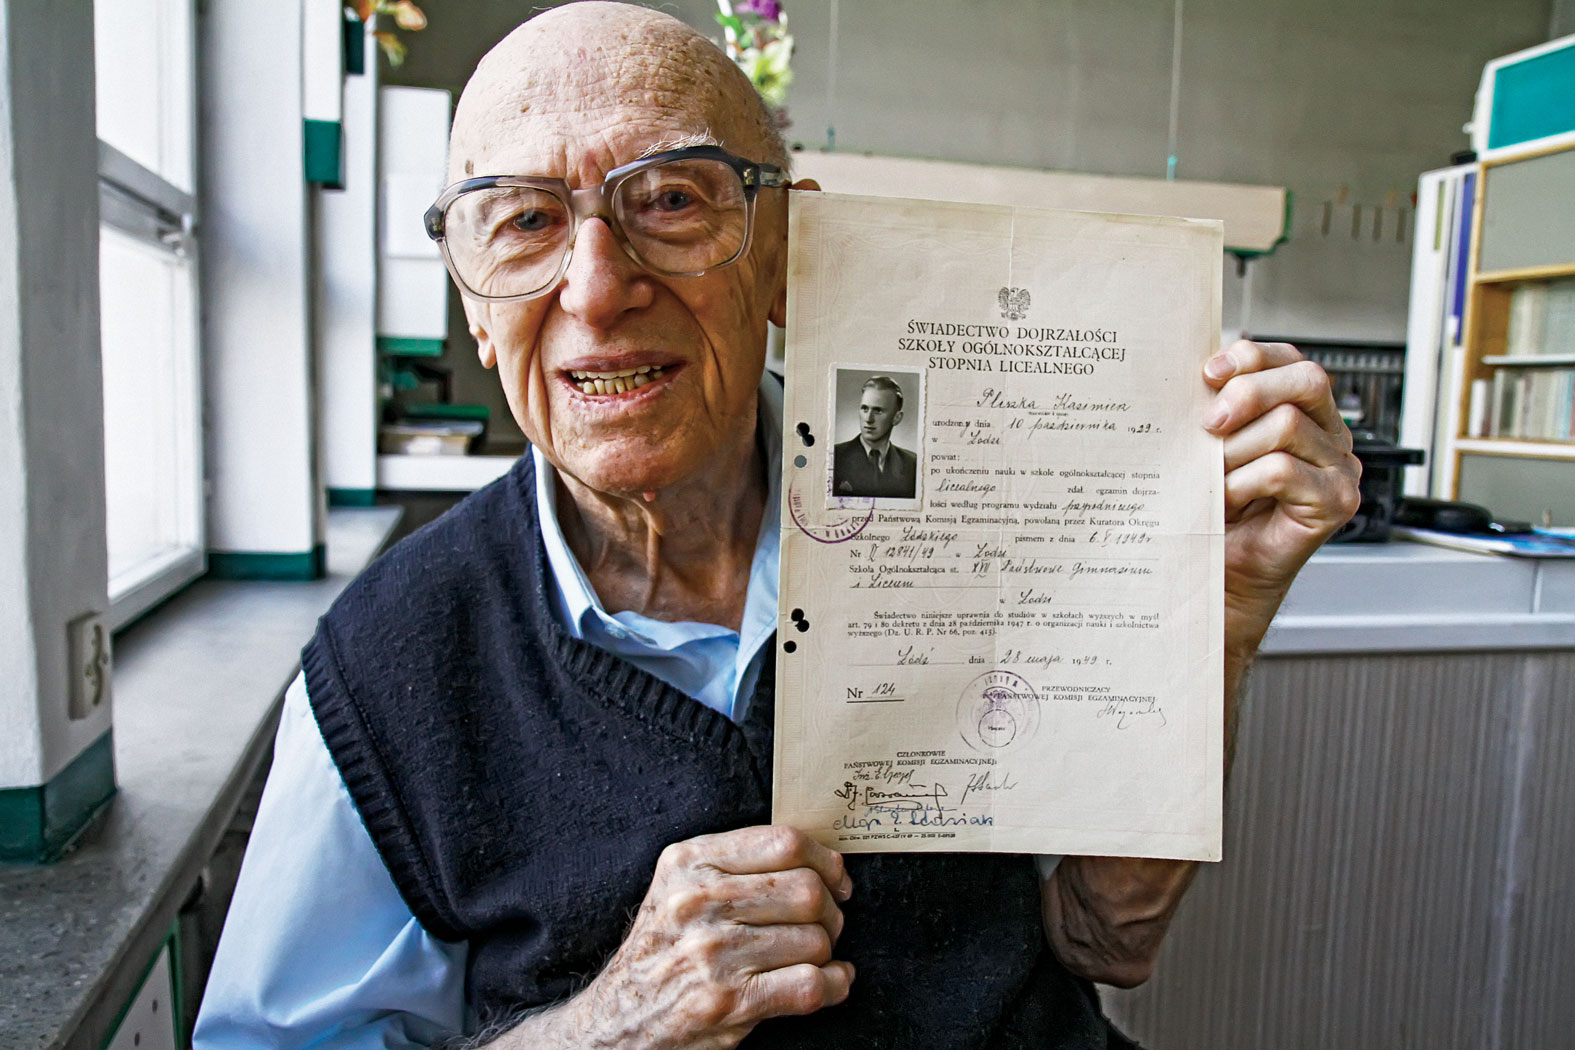 ŚWIADECTWO DOJRZAŁOŚCI
SZKOŁY OGÓLNOKSZTAŁCĄCEJ
STOPNIA LICEALNEGO
Pliszka Kazimierz
urodzony dnia 10 października 1929 r.
w Łodzi
powiat:
po ukończeniu nauki w szkole ogólnokształcącej stopnia
licealnego zdał egzamin dojrza-
łości według programu wydziału przyrodniczego
przed Państwową Komisją Egzaminacyjną, powołaną przez Kuratora Okręgu
Szkolnego Łódzkiego pismem z dnia 6.V.1949 r
Nr II 12841/49 w Łodzi
Szkoła Ogólnokształcąca st. XVII Państwowe Gimnazjum
i Liceum
w Łodzi
Świadectwo niniejsze uprawnia do studiów w szkołach wyższych w myśl
art. 79 i 80 dekretu z dnia 28 października 1947 r. o organizacji nauki i szkolnictwa
wyższego (Dz. U. R. P. Nr 66, poz. 415).
Łódź dnia 28 maja 1949 r.
Nr 124
PRZEWODNICZĄCY
PAŃSTWOWEJ KOMISJI EGZAMINACYJNEJ
CZŁONKOWIE
PAŃSTWOWEJ KOMISJI EGZAMINACYJNEJ: